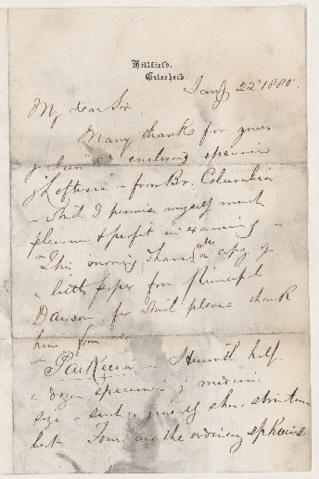 Hillfield,
Gateshead.
Jany 22d 1880.
My dear Sir,
Many thanks for yours
enclosing specimen
of Loftusia - from Br. Columbia
- which I promise myself much
pleasure & profit in examining -
This morning I have a copy of
a little paper from Principal
Dawson for which please thank
him from me
Parkeria - I send half
a dozen specimens of medium
size - such as generally show structure
best Four are the ordinary spherical